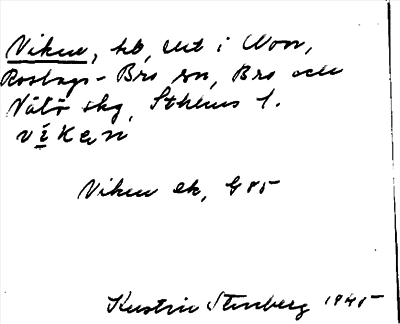 Viken, hb, utt i Won,
Roslags-Bro sn, Bro och
Vätö skg, Sthlms l.
víken
Viken ek, G 85
Kerstin Stenberg 1945